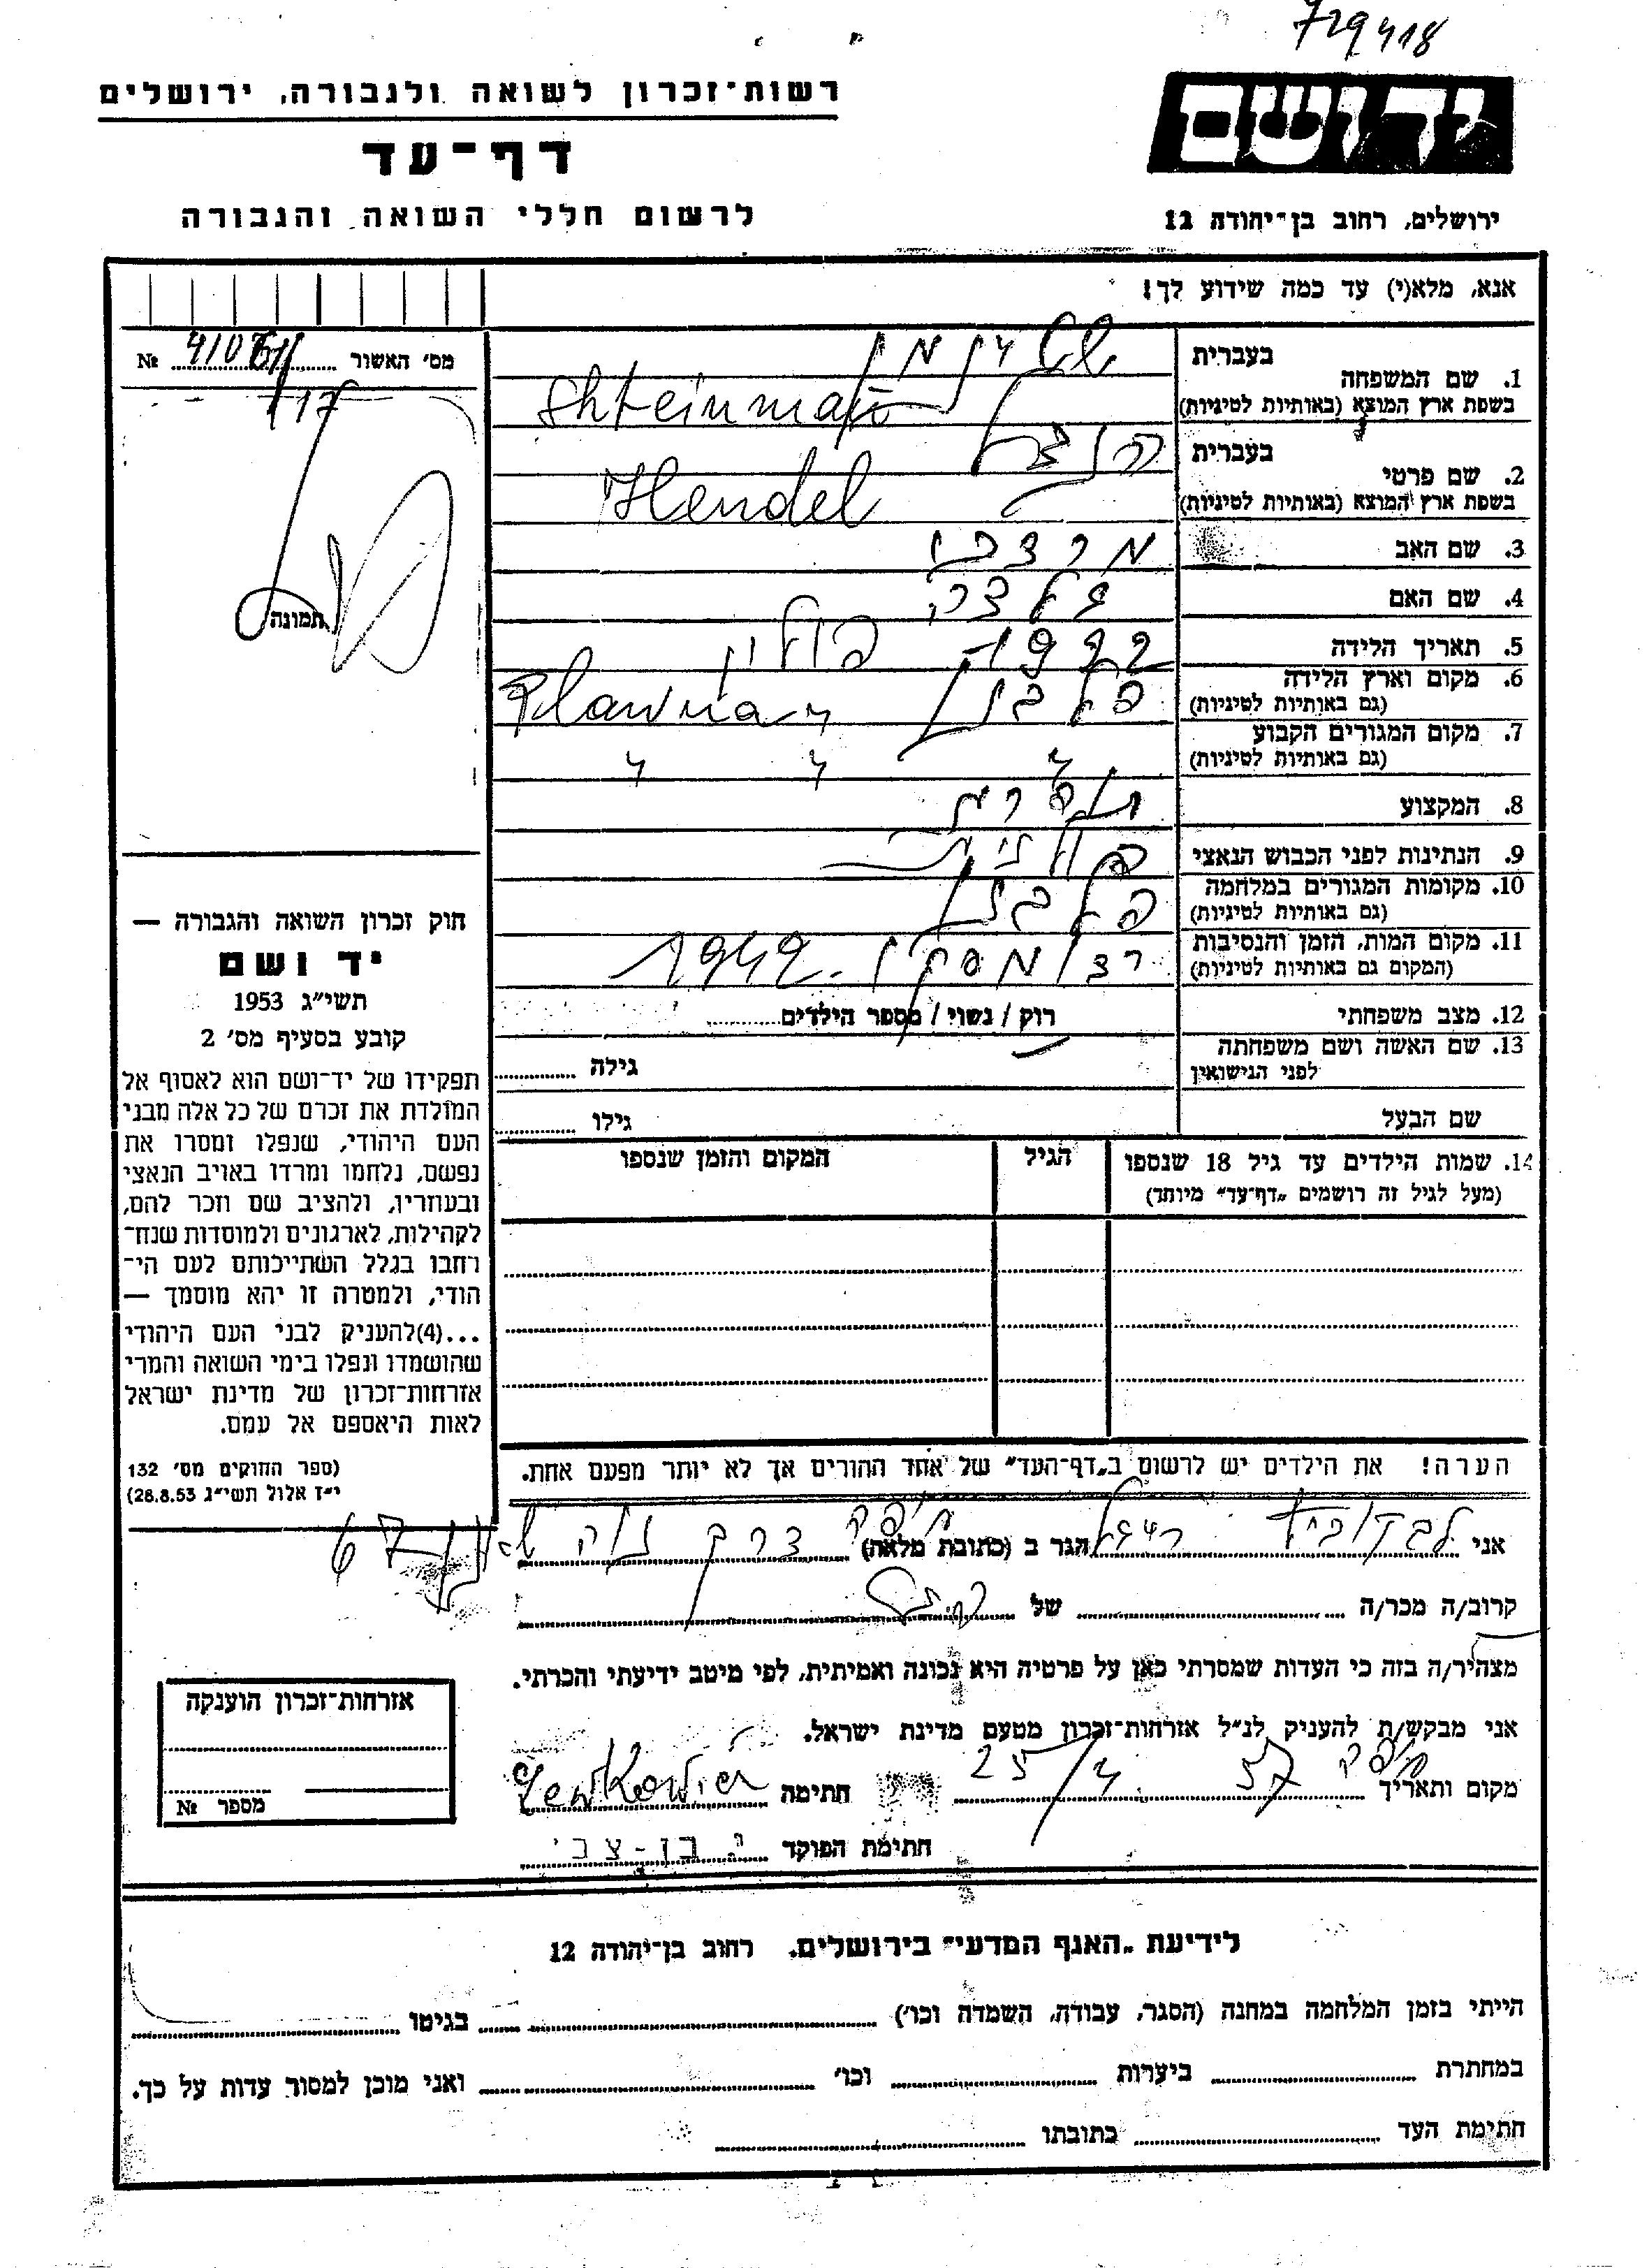 729418
רשות־זכרון לשואה ולגבורה, ירושלים
יד ושם
דף־עד
לרשום חללי השואה והגבורה
ירושלים, רחוב בן־יהודה 12
אנא, מלא(י) עד כמה שידוע לך!
מס׳ האשור № 
/17
תמונה
1. שם המשפחה בעברית שטינמן
בשפת ארץ המוצא (באותיות לטיניות) Shteinman
2. שם פרטי בעברית הנדל
בשפת ארץ המוצא (באותיות לטיניות) Hendel
3. שם האב מרדכי
4. שם האם
5. תאריך הלידה 1922
6. מקום וארץ הלידה פולין
(גם באותיות לטיניות) Plawna
7. מקום המגורים הקבוע
(גם באותיות לטיניות) " " "
8. המקצוע תופרת
9. הנתינות לפני הכבוש הנאצי פולנית
10. מקומות המגורים במלחמה
(גם באותיות לטיניות)
11. מקום המות, הזמן והנסיבות רדומסקו 1942
(המקום גם באותיות לטיניות)
12. מצב משפחתי רוק / נשוי / מספר הילדים
13. שם האשה ושם משפחתה
לפני הנישואין גילה
שם הבעל גילו
14. שמות הילדים עד גיל 18 שנספו הגיל המקום והזמן שנספו
(מעל לגיל זה רושמים „דף־עד״ מיוחד)
הערה! את הילדים יש לרשום ב„דף־העד״ של אחד ההורים אך לא יותר מפעם אחת.
חוק זכרון השואה והגבורה —
יד ושם
תשי״ג 1953
קובע בסעיף מס׳ 2
תפקידו של יד־ושם הוא לאסוף אל
המולדת את זכרם של כל אלה מבני
העם היהודי, שנפלו ומסרו את
נפשם, נלחמו ומרדו באויב הנאצי
ובעוזריו, ולהציב שם וזכר להם,
לקהילות, לארגונים ולמוסדות שנח־
רבו בגלל השתייכותם לעם הי־
הודי, ולמטרה זו יהא מוסמך —
...(4)להעניק לבני העם היהודי
שהושמדו ונפלו בימי השואה והמרי
אזרחות־זכרון של מדינת ישראל
לאות היאספם אל עמם.
(ספר החוקים מס׳ 132
י״ז אלול תשי״ג 28.8.53)
אני לבקוביץ רחל הגר ב (כתובת מלאה) חיפה דרך נוה שאנן 67
קרוב/ה מכר/ה של
מצהיר/ה בזה כי העדות שמסרתי כאן על פרטיה היא נכונה ואמיתית, לפי מיטב ידיעתי והכרתי.
אני מבקש/ת להעניק לנ״ל אזרחות־זכרון מטעם מדינת ישראל.
מקום ותאריך חיפה 25/4 57 חתימה Lewkowicz
חתימת הפוקד י. בן-צבי
אזרחות־זכרון הוענקה
מספר №
לידיעת „האגף המדעי״ בירושלים. רחוב בן־יהודה 12
הייתי בזמן המלחמה במחנה (הסגר, עבודה, השמדה וכו׳) בגיטו
במחתרת ביערות וכו׳ ואני מוכן למסור עדות על כך.
חתימת העד כתובתו